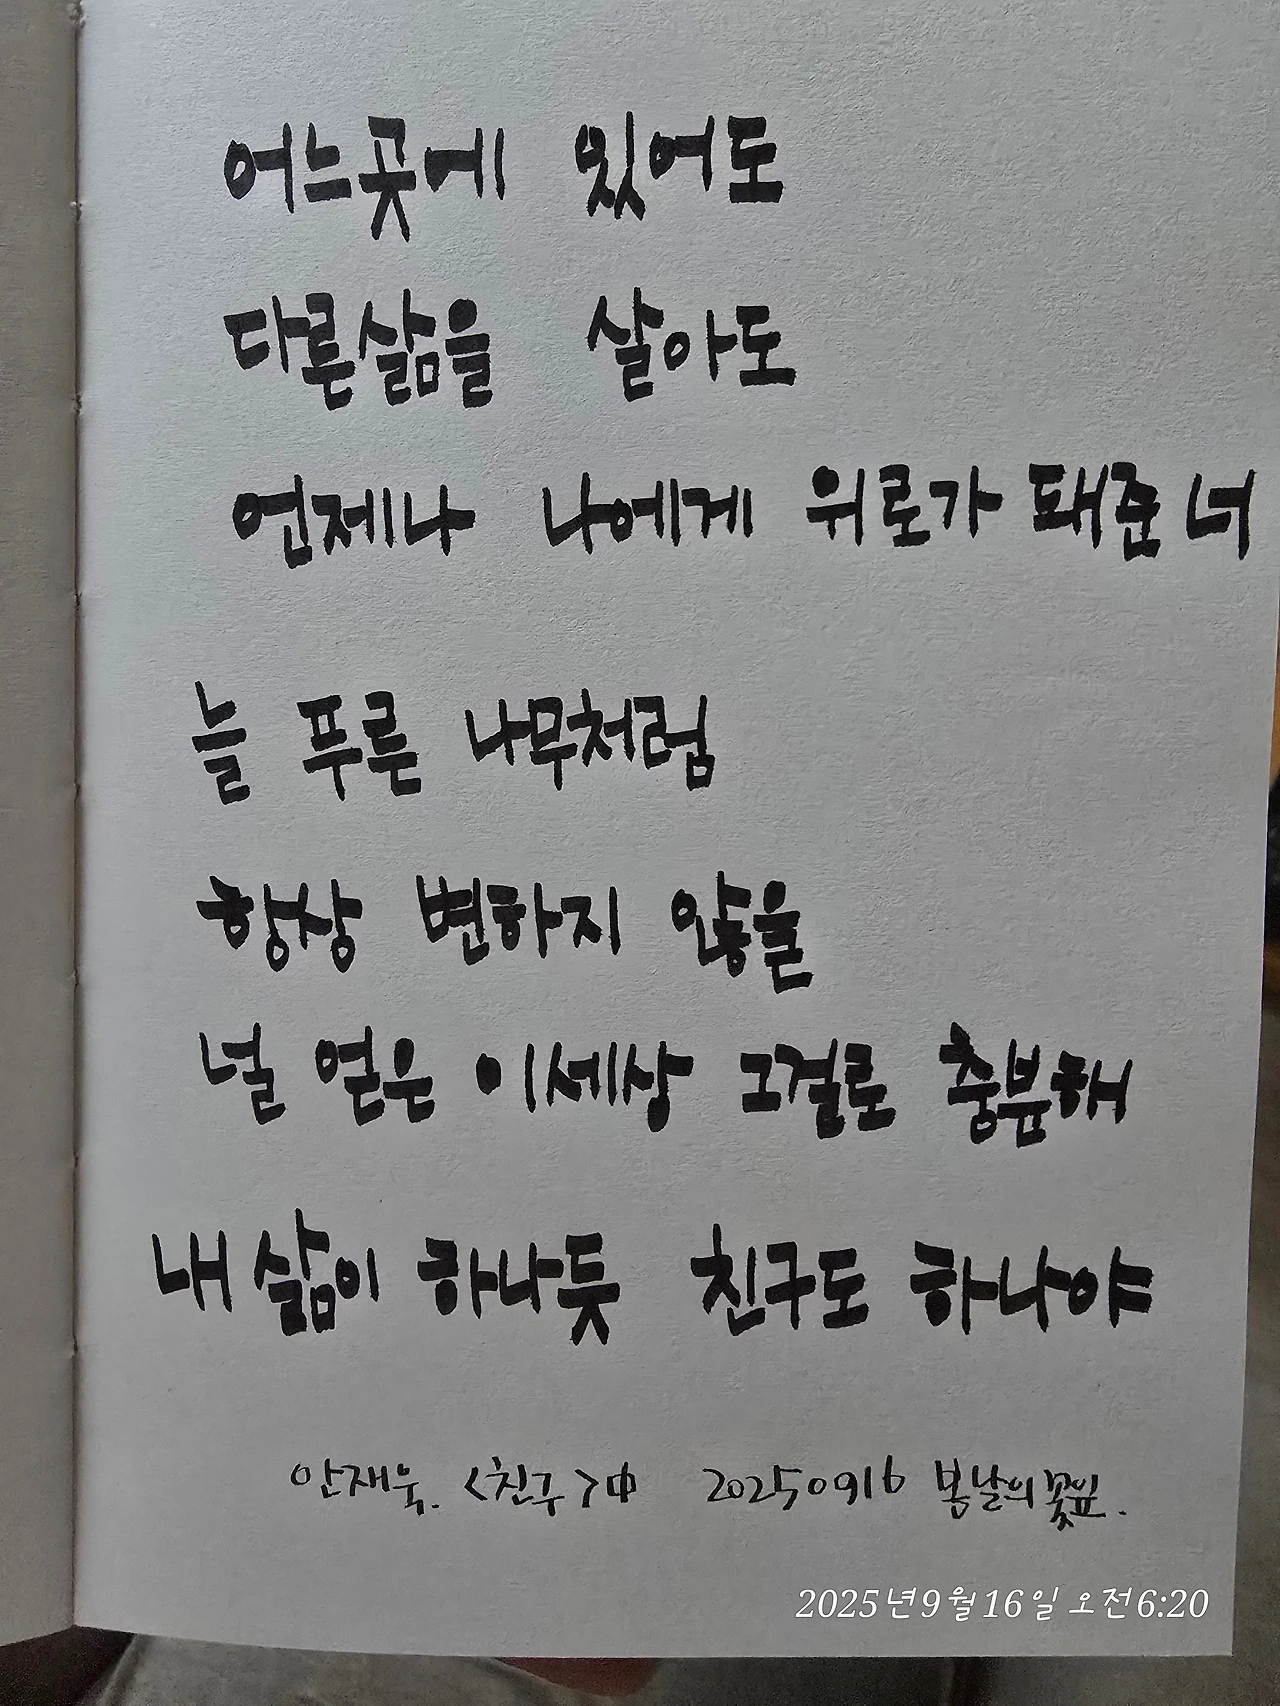 어느곳에 있어도
다른삶을 살아도
언제나 나에게 위로가 돼준 너
늘 푸른 나무처럼
항상 변하지 않을
널 얻은 이세상 그걸로 충분해
내 삶이 하나듯 친구도 하나야
안재욱. <친구>中 20250916 봄날의꽃잎.
2025년 9월 16일 오전 6:20